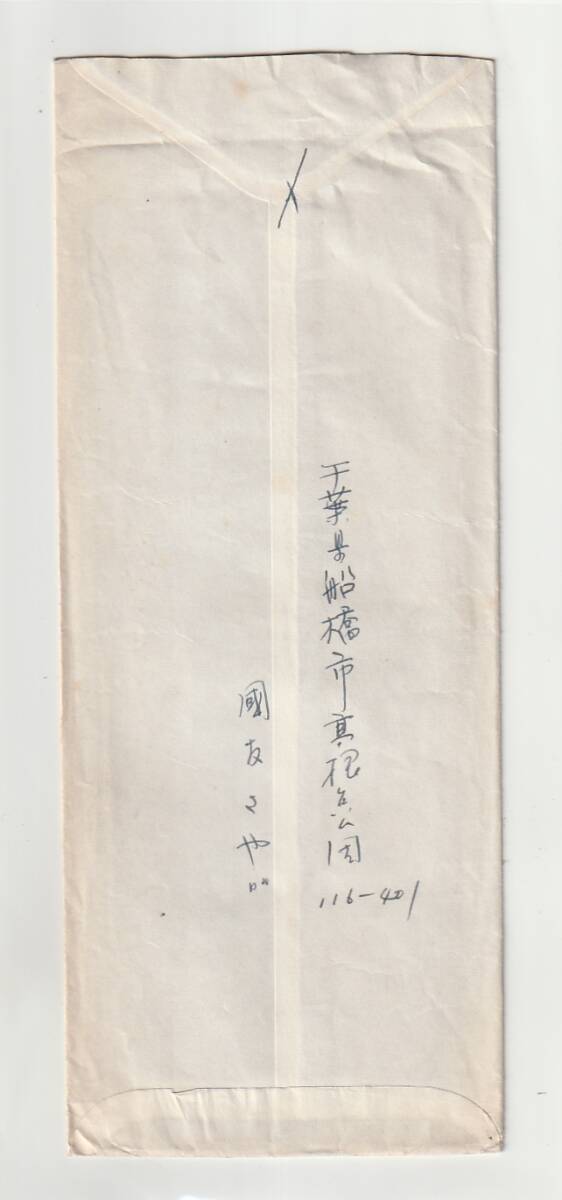 〆
千葉県船橋市高根台公団
116-401
國友さやか